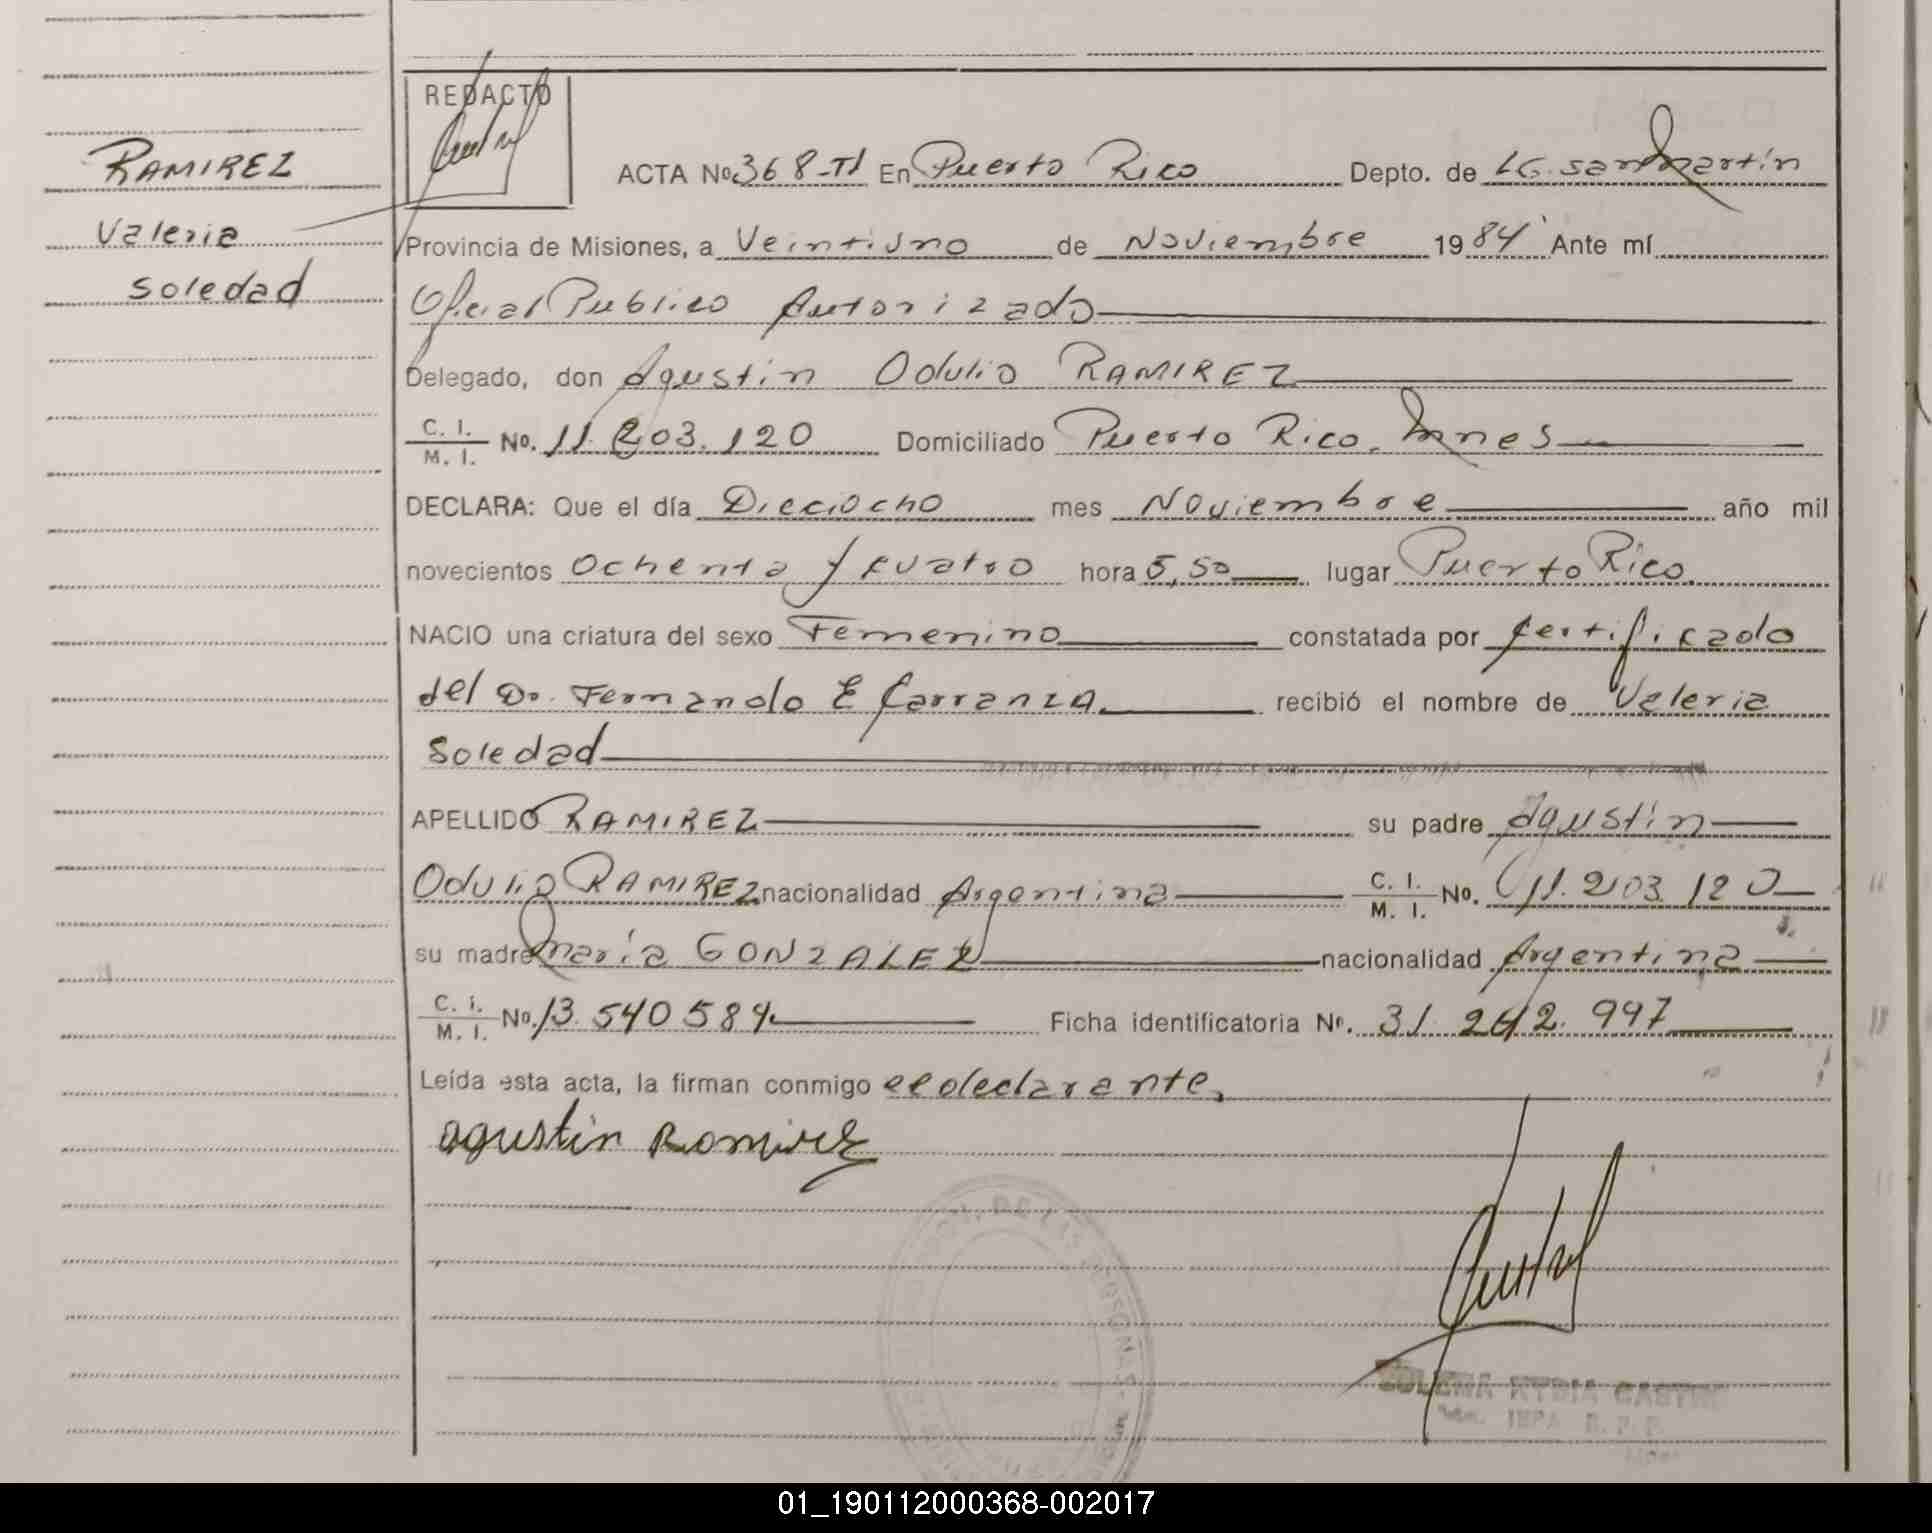 REDACTO
RAMIREZ
Valeria
Soledad
ACTA No 368-TI En Puerto Rico Depto. de LG. San Martín
Provincia de Misiones, a Veintiuno de Noviembre 1984 Ante mí
Oficial Publico Autorizado
Delegado, don Agustin Odulio RAMIREZ
C. I. / M. I. No. 11.203.120 Domiciliado Puerto Rico, Mnes
DECLARA: Que el día Dieciocho mes Noviembre año mil
novecientos Ochenta y cuatro hora 5,50 lugar Puerto Rico
NACIO una criatura del sexo Femenino constatada por Certificado
del Dr. Fernando E Carranza recibió el nombre de Valeria
Soledad
APELLIDO RAMIREZ su padre Agustín
Odulio RAMIREZ nacionalidad Argentina C. I. / M. I. No. 11.203.120
su madre María GONZALEZ nacionalidad Argentina
C. I. / M. I. No. 13.540584 Ficha identificatoria No. 31.242.997
Leída esta acta, la firman conmigo el declarante,
Agustin Ramirez
01_190112000368-002017